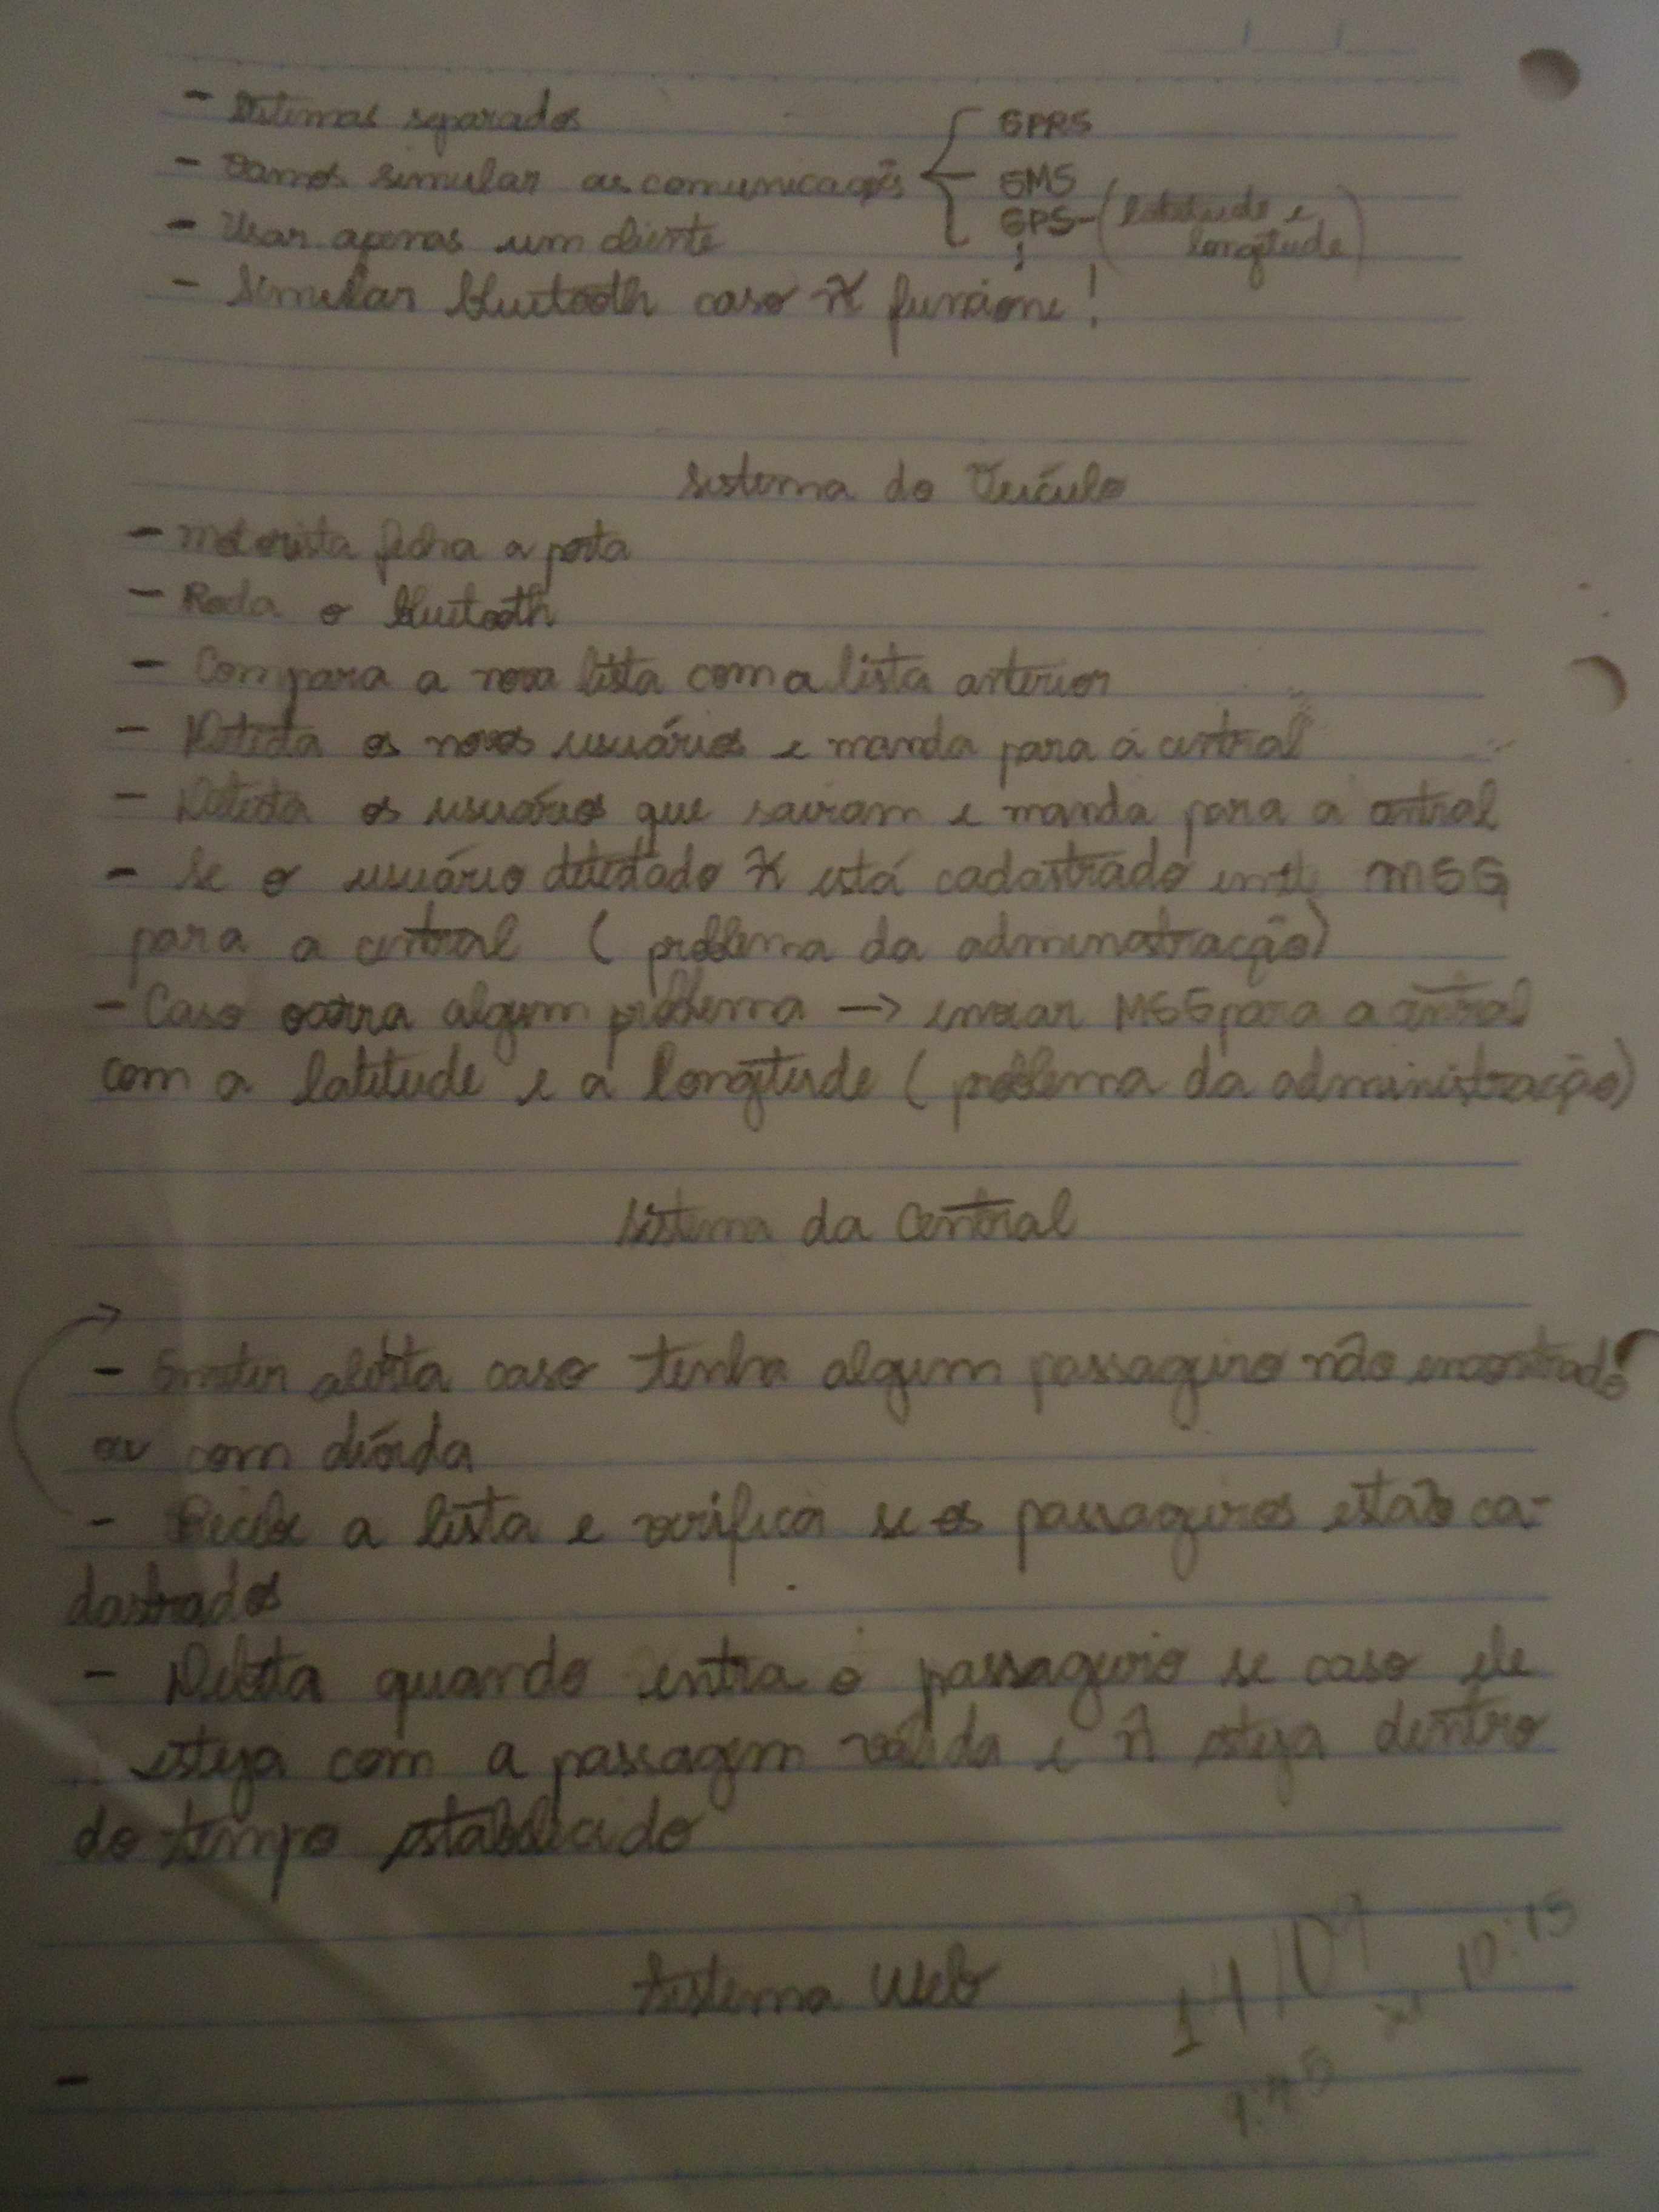 - Sistemas separados
- Vamos simular as comunicações { GPRS
SMS
GPS - (latitude e longitude)
- Usar apenas um cliente
- Simular bluetooth caso ñ funcione!
Sistema do Veículo
- motorista fecha a porta
- Roda o bluetooth
- Compara a nova lista com a lista anterior
- Detecta os novos usuários e manda para a central
- Detecta os usuários que sairam e manda para a central
- Se o usuário detectado ñ está cadastrado emite MSG
para a central ( problema da administração)
- Caso ocorra algum problema → enviar MSG para a central
com a latitude e a longitude ( problema da administração)
Sistema da Central
- Emitir alerta caso tenha algum passageiro não encontrado
ou com dívida
- Recebe a lista e verifica se os passageiros estão ca-
dastrados
- Debita quando entra o passageiro se caso ele
esteja com a passagem válida e ñ esteja dentro
do tempo estabelecido
Sistema Web
14/09
9:45 10:15
-